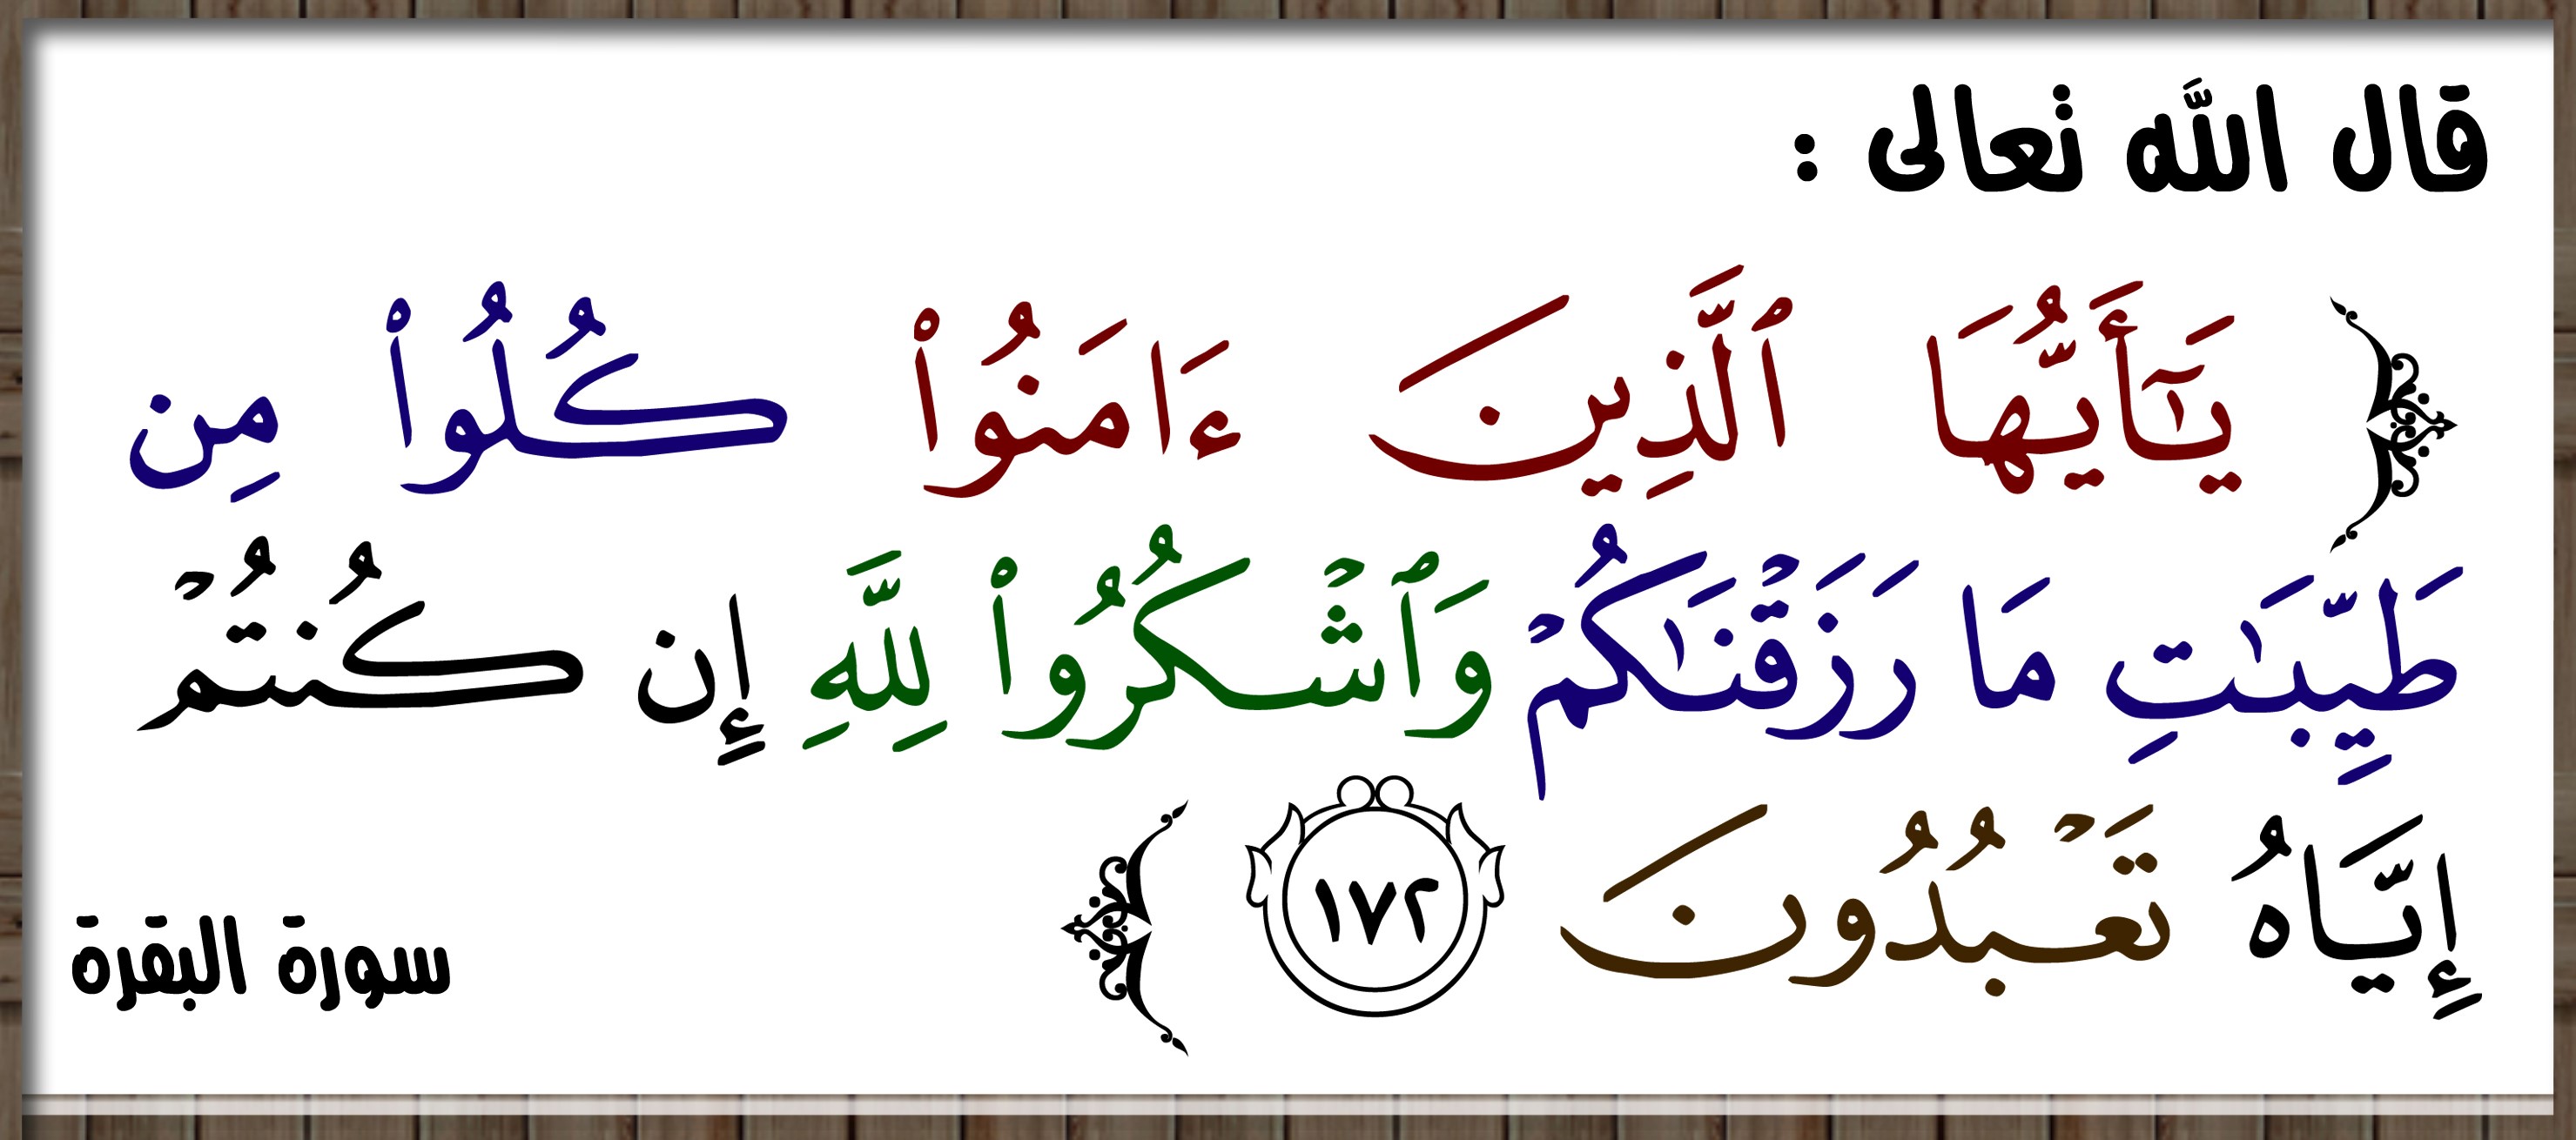 قال اللَّه تعالى :
﴿ يَٰٓأَيُّهَا ٱلَّذِينَ ءَامَنُوا۟ كُلُوا۟ مِن
طَيِّبَٰتِ مَا رَزَقْنَٰكُمْ وَٱشْكُرُوا۟ لِلَّهِ إِن كُنتُمْ
إِيَّاهُ تَعْبُدُونَ ١٧٢ ﴾
سورة البقرة